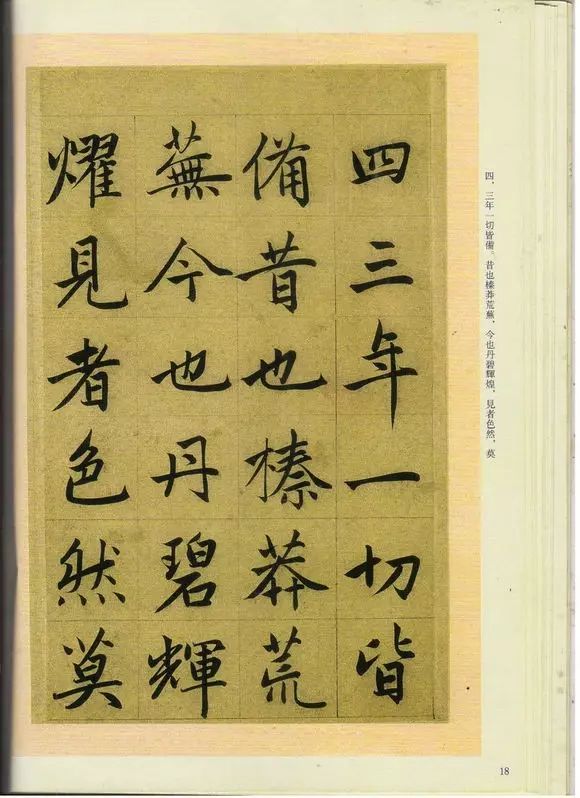 四三年一切皆
備昔也榛莽荒
蕪今也丹碧輝
耀見者色然莫
四、三年一切皆備。昔也榛莽荒蕪，今也丹碧輝煌，見者色然，莫
18